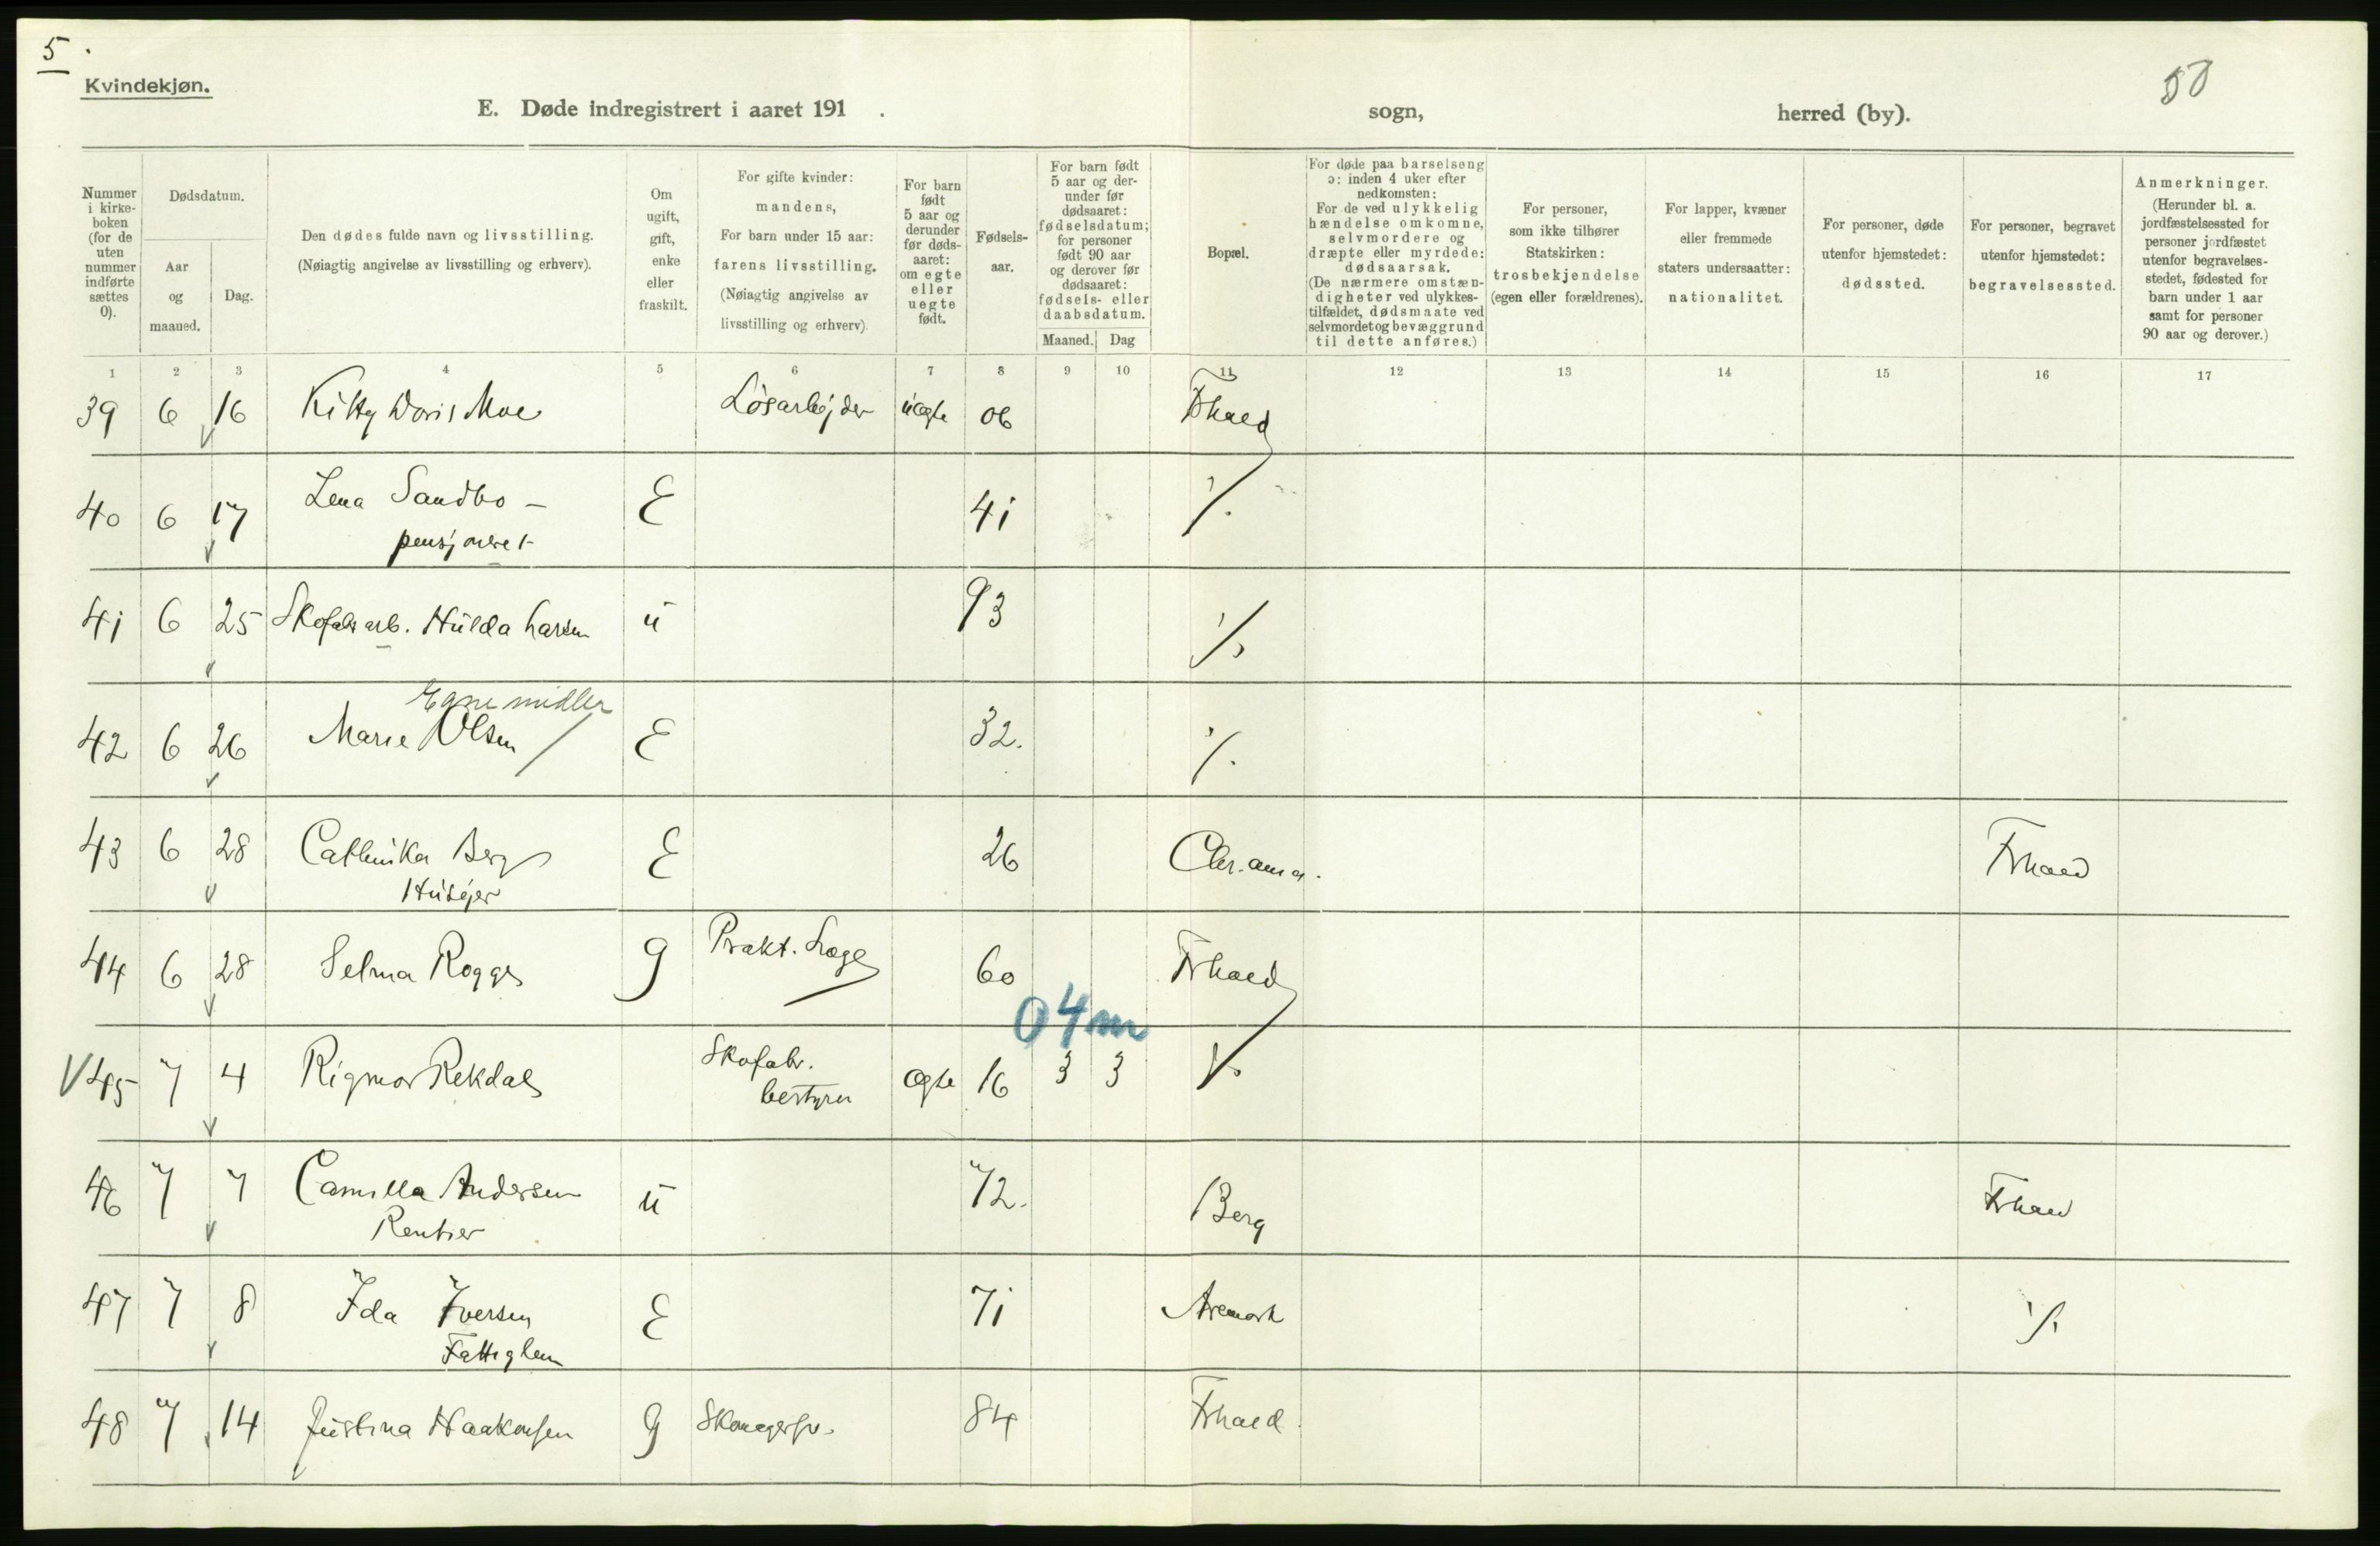 5
Kvindekjøn.
50
E. Døde indregistrert i aaret 191 . sogn, herred (by).
Nummer i kirkeboken (for de uten nummer indførte sættes 0).
Dødsdatum.
Aar og maaned.
Dag.
Den dødes fulde navn og livsstilling.
(Nøiagtig angivelse av livsstilling og erhverv).
Om ugift, gift, enke eller fraskilt.
For gifte kvinder: mandens,
For barn under 15 aar: farens livsstilling.
(Nøiagtig angivelse av livsstilling og erhverv)
For barn født 5 aar og derunder før dødsaaret: om egte eller uegte født.
Fødselsaar.
For barn født 5 aar og derunder før dødsaaret: fødselsdatum; for personer født 90 aar og derover før dødsaaret: fødsels- eller daabsdatum.
Maaned. Dag
Bopæl.
For døde paa barselseng ɔ: inden 4 uker efter nedkomsten:
For de ved ulykkelig hændelse omkomne, selvmordere og dræpte eller myrdede: dødsaarsak.
(De nærmere omstændigheter ved ulykkestilfældet, dødsmaate ved selvmordet og bevæggrund til dette anføres.)
For personer, som ikke tilhører Statskirken: trosbekjendelse (egen eller forældrenes).
For lapper, kvæner eller fremmede staters undersaatter: nationalitet.
For personer, døde utenfor hjemstedet: dødssted.
For personer, begravet utenfor hjemstedet: begravelsessted.
Anmerkninger.
(Herunder bl. a. jordfæstelsessted for personer jordfæstet utenfor begravelsesstedet, fødested for barn under 1 aar samt for personer 90 aar og derover.)
1 2 3 4 5 6 7 8 9 10 11 12 13 14 15 16 17
39 6 16 Kitty Doris Moe Løsarbejder uegte 06 Frhald
40 6 17 Lena Sandbo – E 41 ⁒
pensjoneret
41 6 25 Skofabrarb. Hulda Larsen u 93 ⁒
Egne midler
42 6 26 Marie Olsen E 32. ⁒
43 6 28 Cathinka Berg E 26 Chr.ania. Frhald
Huséjer
44 6 28 Selma Rogge g Prakt. Læge 60 Frhald
04m
45 7 4 Rigmor Rekdal Skofabr. bestyrer egte 16 3 3 ⁒
46 7 7 Camilla Andersen u 72. Berg Frhald
Rentier
47 7 8 Ida Iversen E 71 Aremark ⁒
Fattiglem
48 7 14 Justina Haakonsen g 84 Frhald